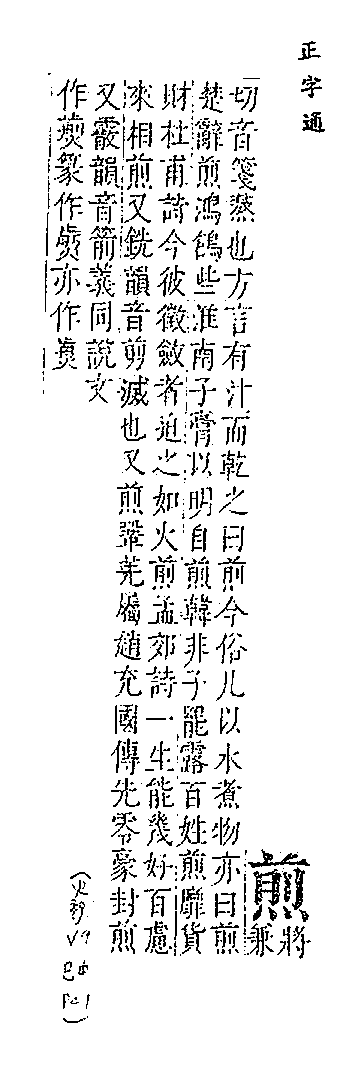 正字通
煎
將
兼
切音箋熬也方言有汁而乾之曰煎今俗凡以水煮物亦曰煎
楚辭煎鴻鶬些淮南子膏以明自煎韓非子罷露百姓煎靡貨
財杜甫詩今彼徵斂者迫之如火煎孟郊詩一生能幾好百慮
來相煎又銑韻音剪滅也又煎鞏羌屬趙充國傳先零豪封煎
又霰韻音箭義同說文
作篆作亦作
(火部